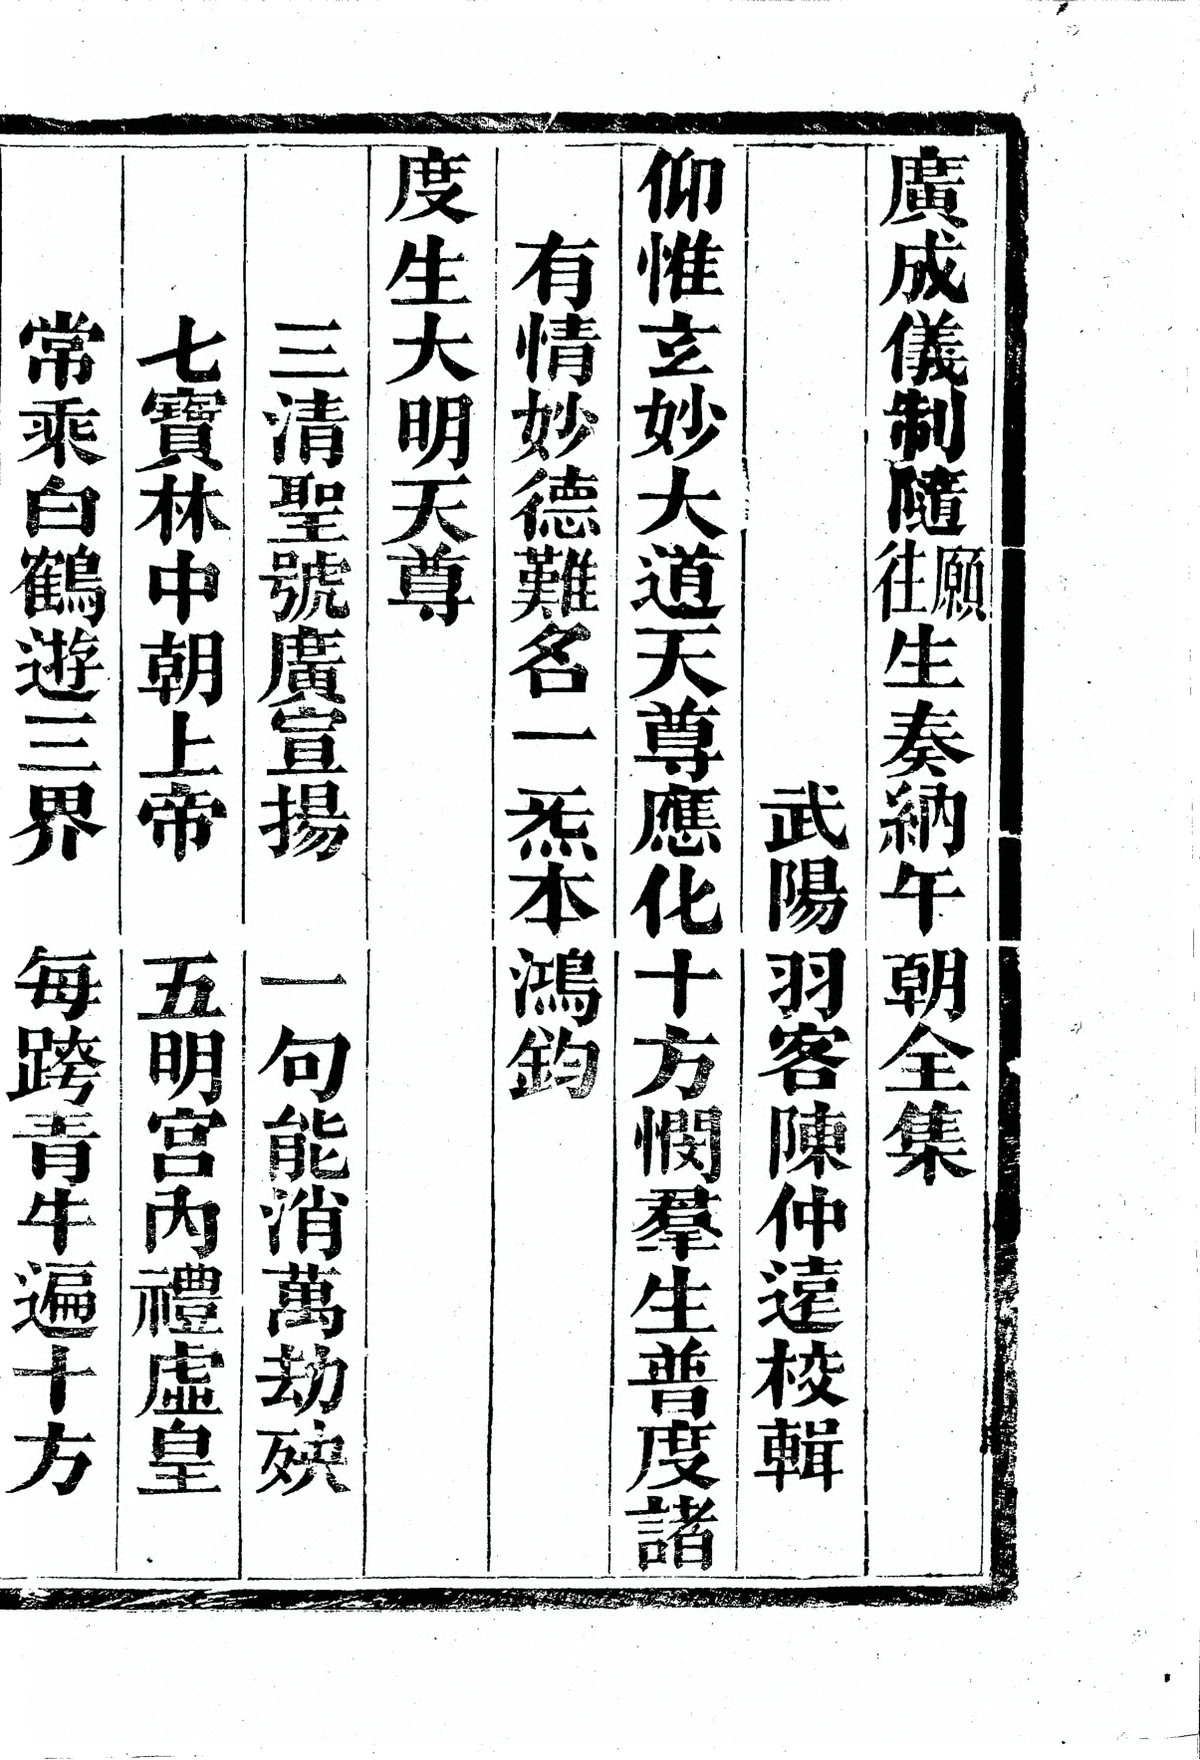 廣成儀制隨願往生奏納午朝全集
武陽羽客陳仲遠校輯
仰惟玄妙大道天尊應化十方憫羣生普度諸
有情妙德難名一炁本鴻鈞
度生大明天尊
三清聖號廣宣揚　一句能消萬劫殃
七寶林中朝上帝　五明宮內禮虛皇
常乘白鶴遊三界　每跨青牛遍十方